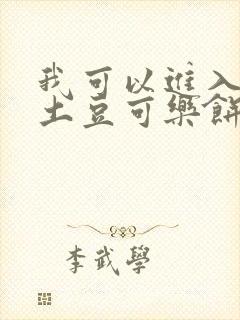 我可以進入
土豆可樂餅
李武學